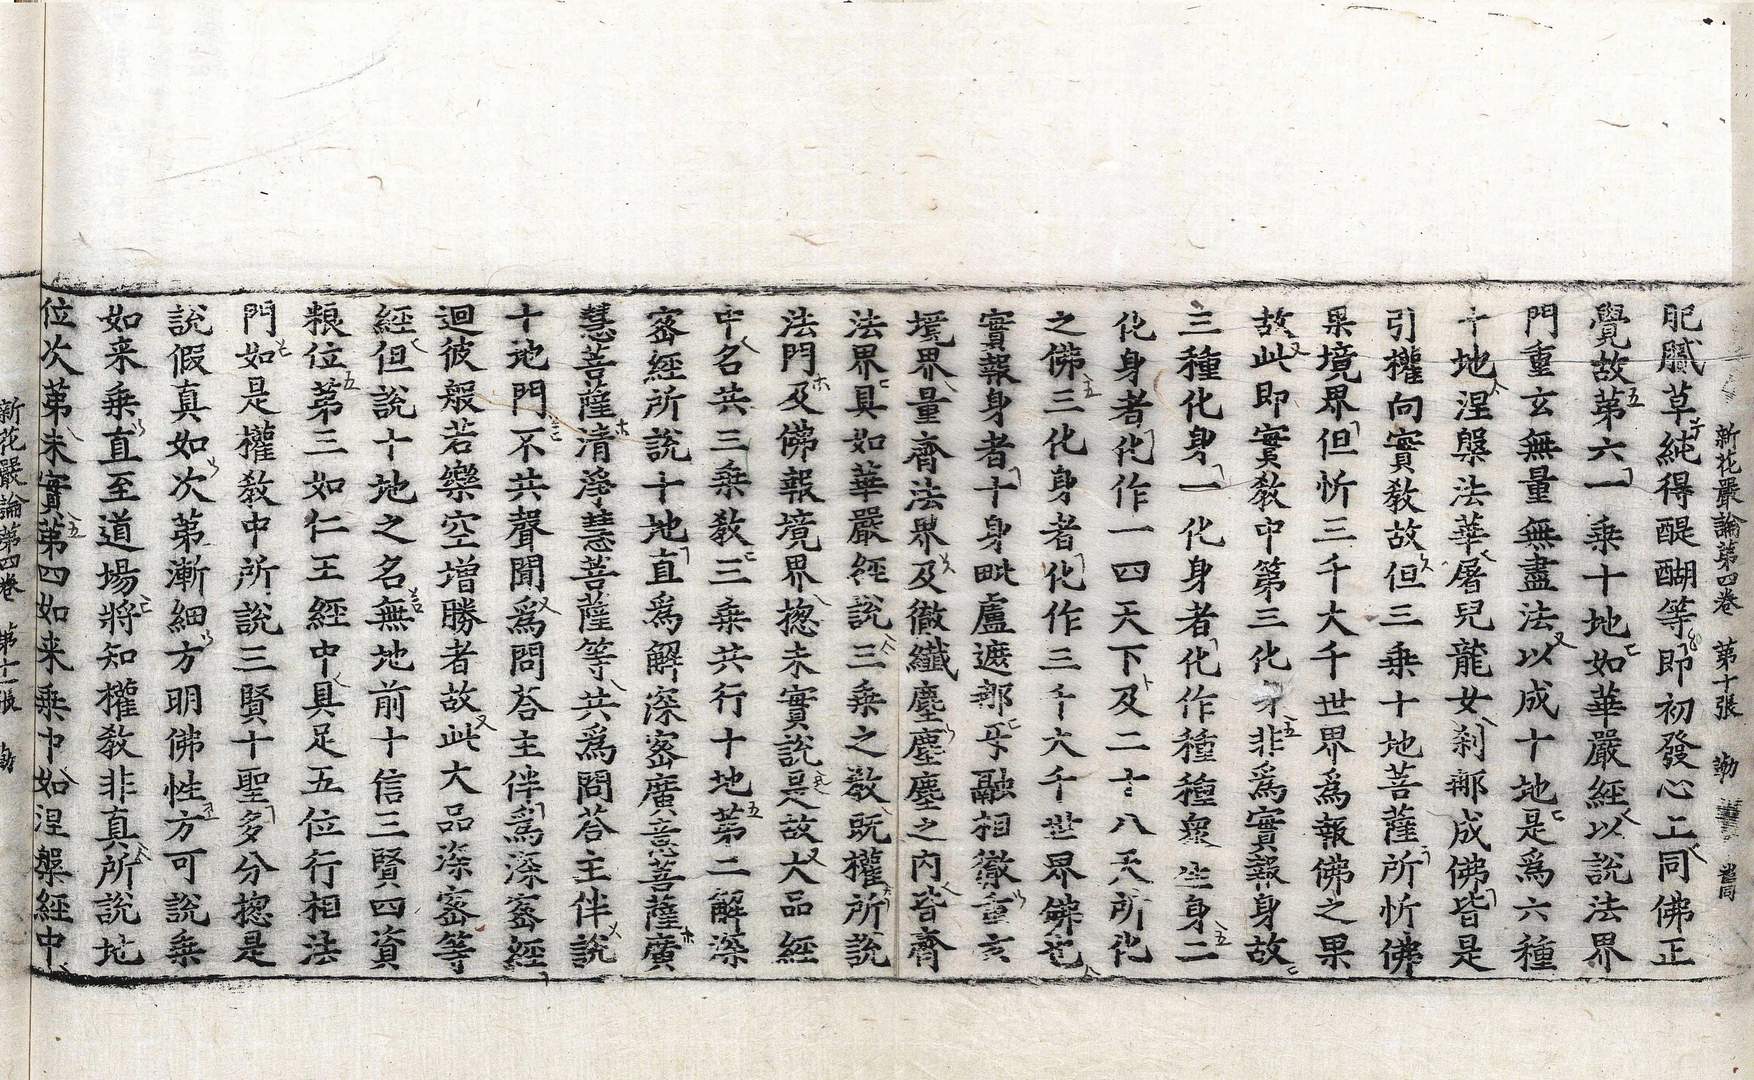 新花嚴論第四卷 第十張 勤
肥膩草純得醍醐等即初發心上同佛正
覺故第六一乗十地如華嚴經以說法界
門重玄無量無盡法以成十地是爲六種
十地涅槃法華屠兒龍女刹那成佛皆是
引權向實教故但三乗十地菩薩所忻佛
果境界但忻三千大千世界爲報佛之果
故此即實教中第三化身非爲實報身故
三種化身一化身者化作種種衆生身二
化身者化作一四天下及二十八天所化
之佛三化身者化作三千大千世界佛也
實報身者十身毗盧遮那㸦融相徹重玄
境界量齊法界及徹纎塵塵塵之内皆齊
法界具如華嚴經說三乗之教既權所說
法門及佛報境界揔未實說是故大品經
中名共三乗教三乗共行十地第二解深
宻經所說十地直爲解深宻廣意菩薩廣
慧菩薩清淨慧菩薩等共爲問荅主伴說
十地門不共聲聞爲問荅主伴爲深宻經
迴彼般若樂空增勝者故此大品深宻等
經但說十地之名無地前十信三賢四資
粮位第三如仁王經中具足五位行相法
門如是權教中所說三賢十聖多分揔是
說假真如次第漸細方明佛性方可說乗
如来乗直至道場將知權教非真所說地
位次第未實第四如来乗中如涅槃經中
新花嚴論第四卷 第十一張 勤